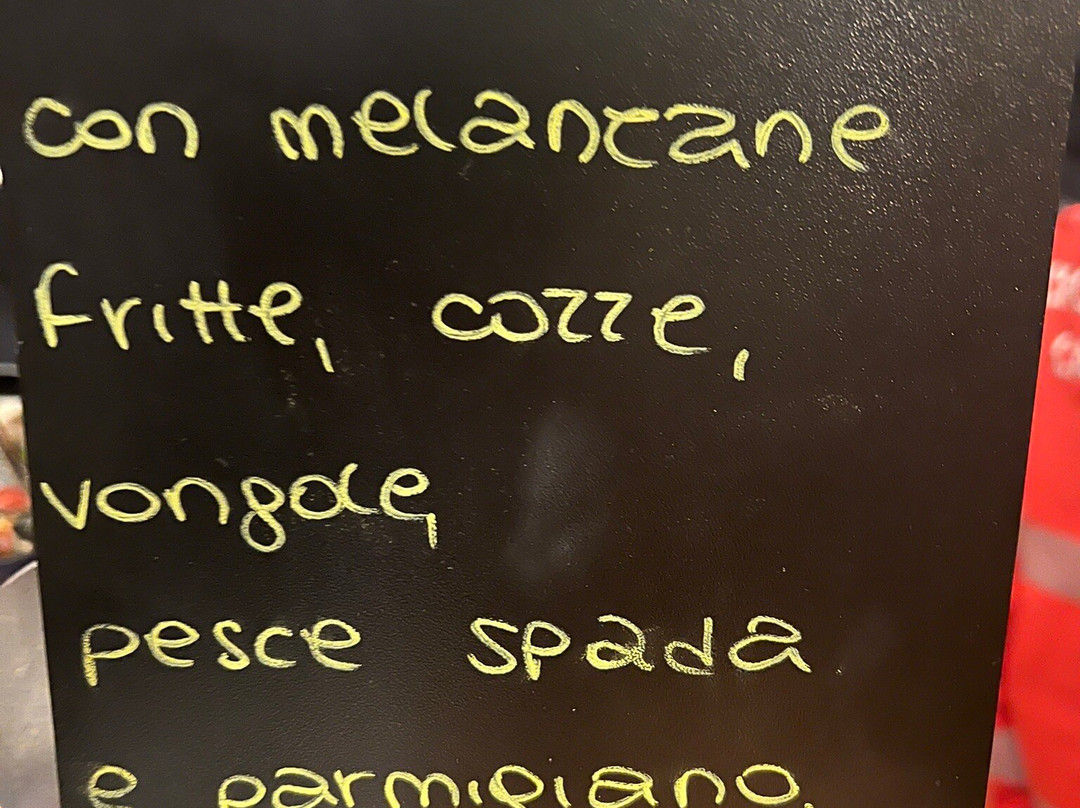 con melanzane
fritte, cozze,
vongole,
pesce spada
e parmigiano.